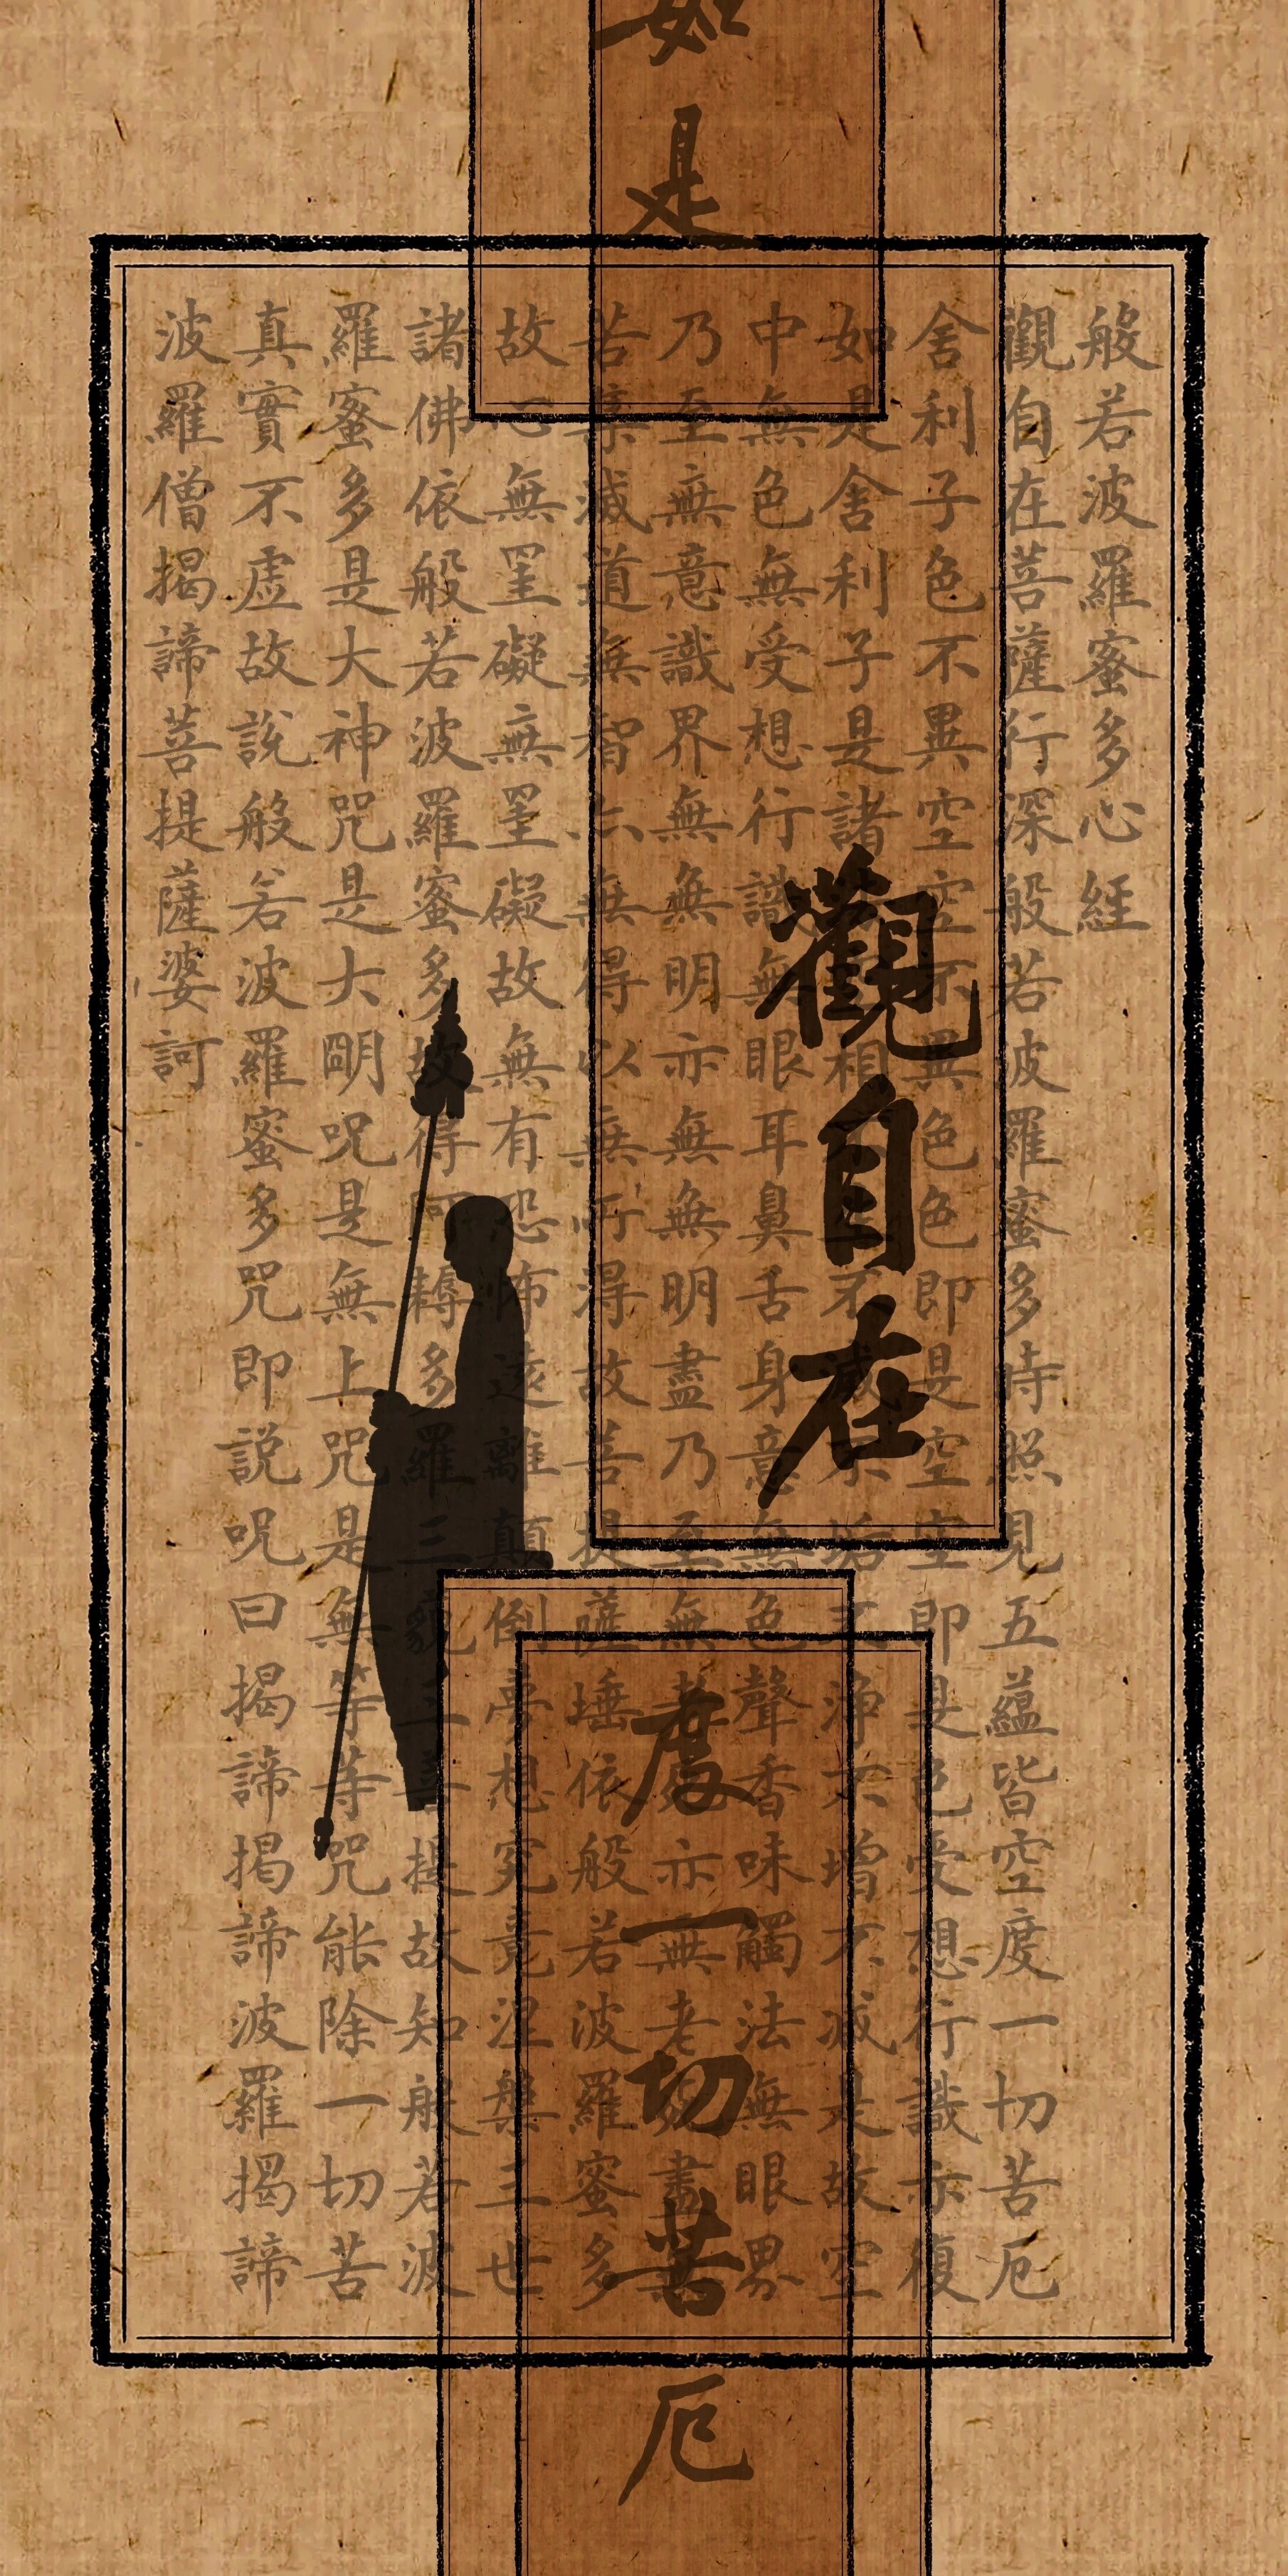 如是
觀自在
度一切苦厄
般若波羅蜜多心經
觀自在菩薩行深般若波羅蜜多時照見五蘊皆空度一切苦厄
舍利子色不異空空不異色色即是空空即是色受想行識亦復
如是舍利子是諸法空相不生不滅不垢不淨不增不減是故空
中無色無受想行識無眼耳鼻舌身意無色聲香味觸法無眼界
乃至無意識界無無明亦無無明盡乃至無老死亦無老死盡無
苦集滅道無智亦無得以無所得故菩提薩埵依般若波羅蜜多
故心無罣礙無罣礙故無有恐怖遠離顛倒夢想究竟涅槃三世
諸佛依般若波羅蜜多故得阿耨多羅三藐三菩提故知般若波
羅蜜多是大神咒是大明呪是無上咒是無等等咒能除一切苦
真實不虛故說般若波羅蜜多咒即説呪曰揭諦揭諦波羅揭諦
波羅僧揭諦菩提薩婆訶